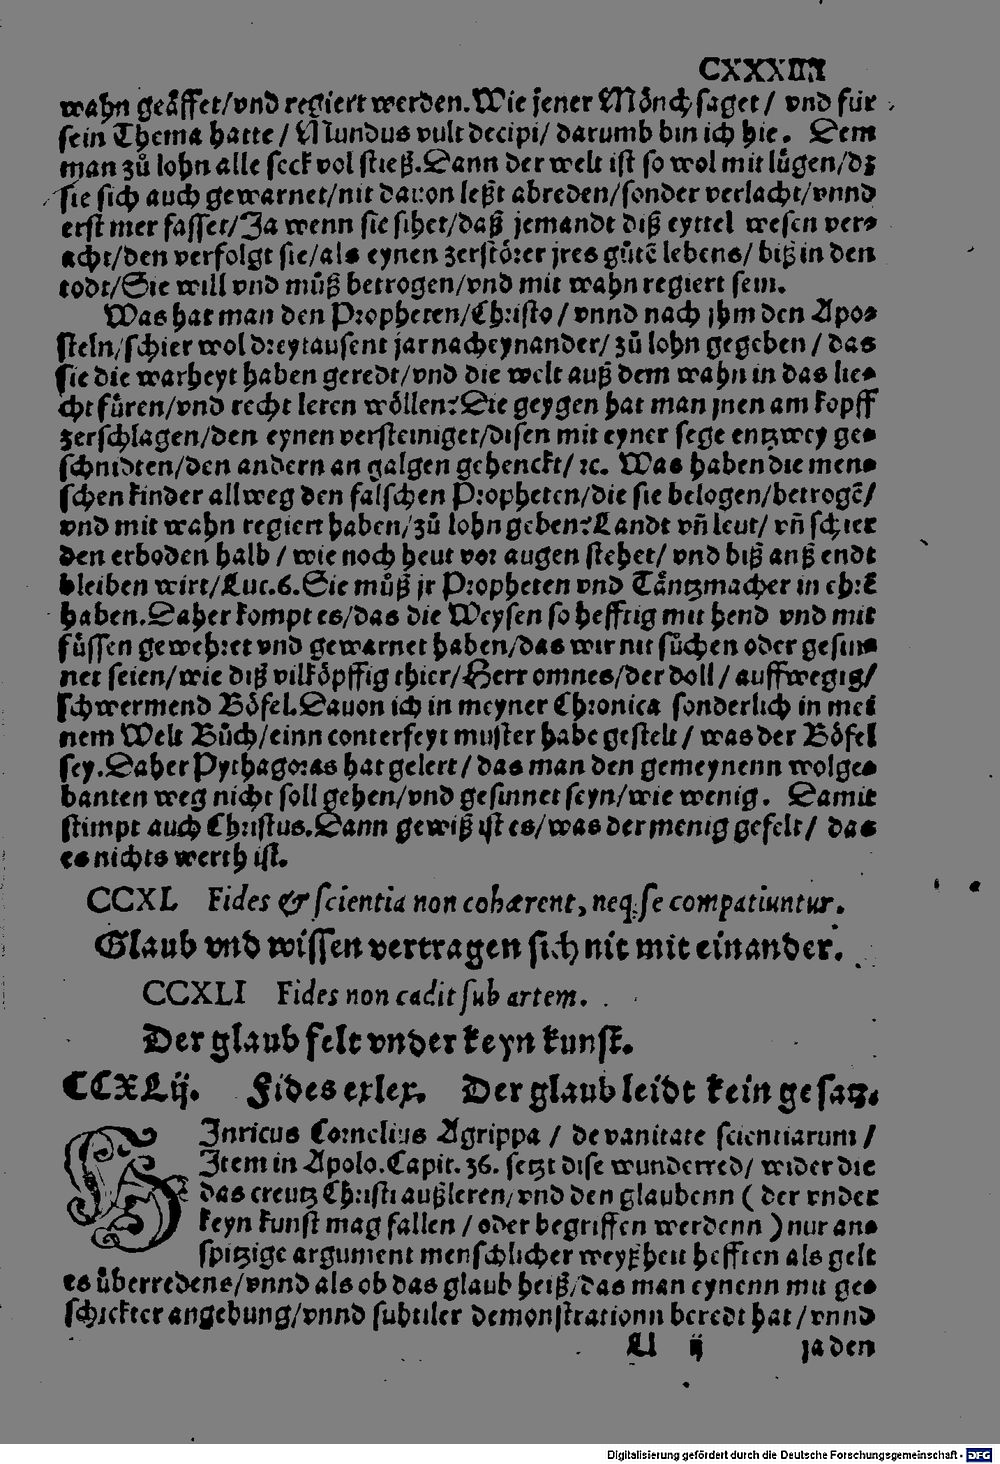 CXXXIIII
wahn geäffet/vnd regiert werden. Wie jener Mönch saget/ vnd für
sein Thema hatte/ Mundus vult decipi/ darumb bin ich hie. Dem
man zů lohn alle seck vol stieß. Dann der welt ist so wol mit lügen/dz
sie sich auch gewarnet/nit dauon leßt abreden/sonder verlacht/vnnd
erst mer fasset/Ja wenn sie sihet/daß jemandt diß eyttel wesen ver⸗
acht/den verfolgt sie/als eynen zerstörer jres gůtē lebens/ biß in den
todt/Sie will vnd můß betrogen/vnd mit wahn regiert sein.
Was hat man den Propheten/Christo/ vnnd nach jhm den Apo⸗
steln/schier wol dreytausent jar nacheynander/ zů lohn gegeben/ das
sie die warheyt haben geredt/vnd die welt auß dem wahn in das lie⸗
cht füren/vnd recht leren wöllen? Die geygen hat man jnen am kopff
zerschlagen/den eynen versteiniget/disen mit eyner sege entzwey ge⸗
schnidten/den andern an galgen gehenckt/ ꝛc. Was haben die men⸗
schen kinder allweg den falschen Propheten/die sie belogen/betrogē/
vnd mit wahn regiert haben/zů lohn geben? Landt vñ leut/ vñ schier
den erboden halb/ wie noch heut vor augen stehet/ vnd biß anß endt
bleiben wirt/Luc.6. Sie můß jr Propheten vnd Täntzmacher in ehrē
haben. Daher kompt es/das die Weysen so hefftig mit hend vnd mit
füssen gewehret vnd gewarnet haben/das wir nit sůchen oder gesin⸗
net seien/wie diß vilköpffig thier/Herr omnes/der doll/ auffwegig/
schwermend Böfel. Dauon ich in meyner Chronica sonderlich in mei
nem Welt Bůch/einn conterfeyt muster habe gestelt/ was der Böfel
sey. Daher Pythagoras hat gelert/ das man den gemeynenn wolge⸗
banten weg nicht soll gehen/vnd gesinnet seyn/wie wenig. Damit
stimpt auch Christus. Dann gewiß ist es/was der menig gefelt/ das
es nichts werth ist.
CCXL Fides & scientia non cohærent, neq; se compatiuntur.
Glaub vnd wissen vertragen sich nit mit einander.
CCXLI Fides non cadit sub artem.
Der glaub felt vnder keyn kunst.
CCXLij. Fides exlex. Der glaub leidt kein gesatz.
HInricus Cornelius Agrippa/ de vanitate scientiarum/
Item in Apolo. Capit. 36. setzt dise wunderred/ wider die
das creutz Christi außleren/vnd den glaubenn ( der vnder
keyn kunst mag fallen/ oder begriffen werdenn ) nur an⸗
spitzige argument menschlicher weyßheit hefften als gelt
es überredens/vnnd als ob das glaub heiß/das man eynenn mit ge⸗
schickter angebung/vnnd subtiler demonstrationn beredt hat/vnnd
ij ja den
Digitalisierung gefördert durch die Deutsche Forschungsgemeinschaft - DFG